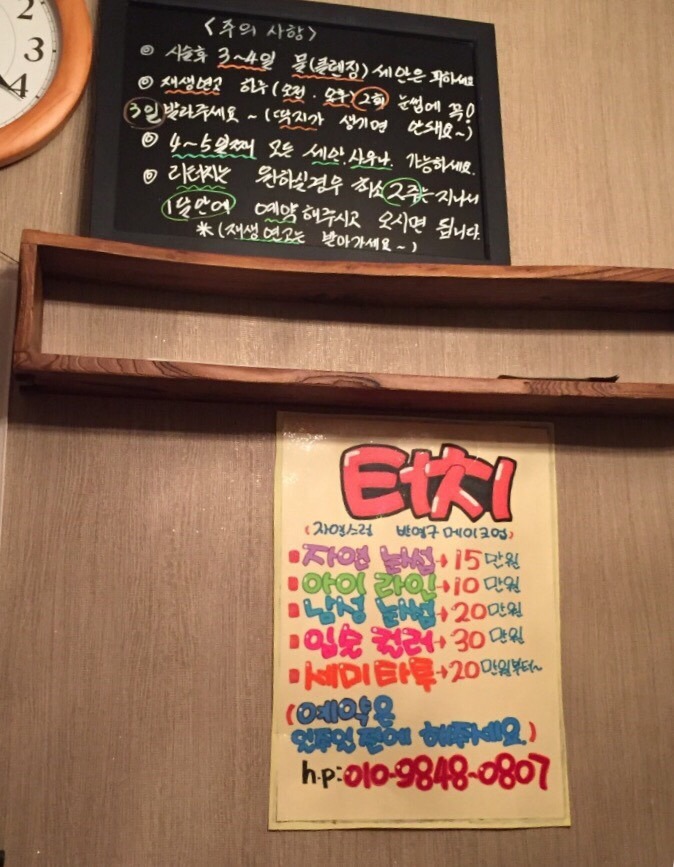 2
3
4
<주의 사항>
◎ 시술후 3~4일 물(클렌징) 세안은 피하세요
◎ 재생연고 하루(오전·오후) 2회 눈썹에 꼭!
3일 발라주세요~ (딱지가 생기면 안돼요~)
◎ 4~5일째 모든 세안, 사우나 가능하세요.
◎ 리터치는 원하실경우 최소 2주는 지나서
1달안에 예약해주시고 오시면 됩니다.
*(재생연고는 받아가세요~)
터치
(자연스런 반영구 메이크업)
자연 눈썹→15만원
아이 라인→10만원
남성 눈썹→20만원
입술 컬러→30만원
세미타투→20만원부터~
(예약은
일주일 전에 해주세요.)
h.p:010-9848-0807